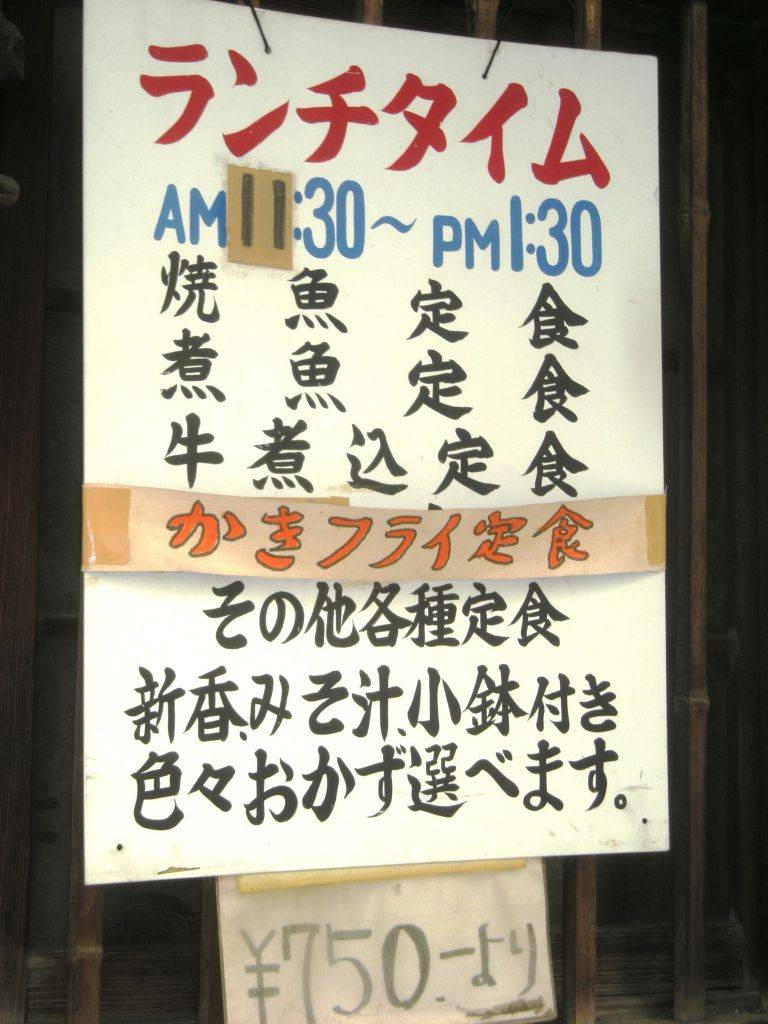 ランチタイム
AM11:30～PM1:30
焼魚定食
煮魚定食
牛煮込定食
かきフライ定食
その他各種定食
新香、みそ汁、小鉢付き
色々おかず選べます。
¥750.-より